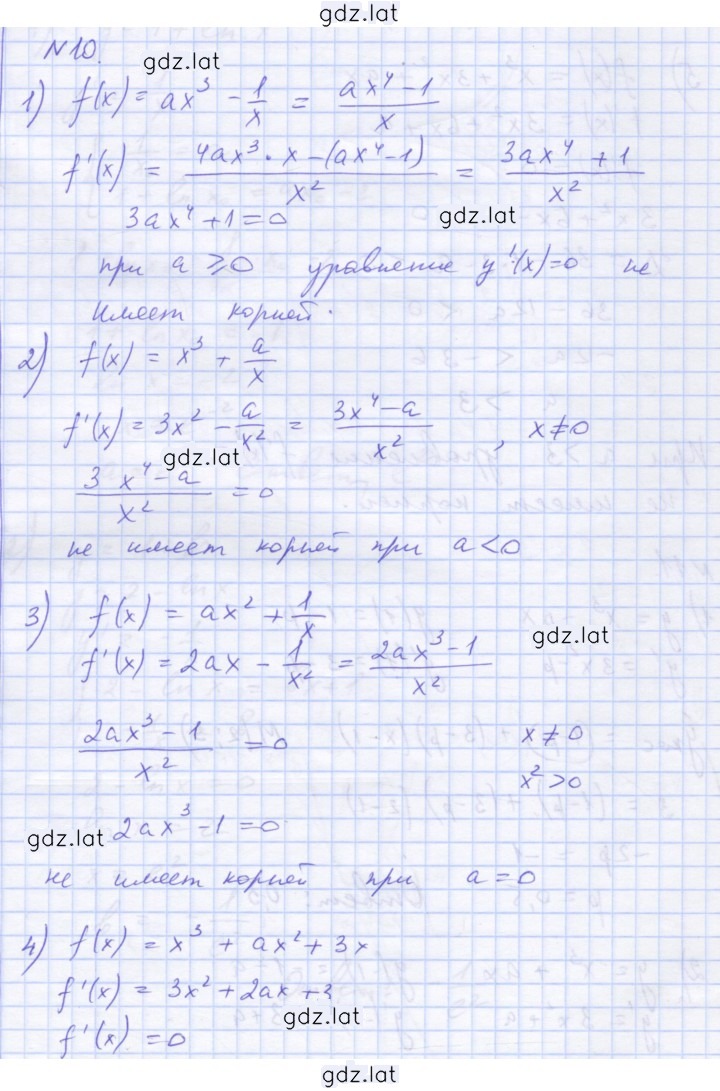 gdz.lat
N10.
gdz.lat
1) f(x) = ax³ - 1/x = (ax⁴-1)/x
f'(x) = (4ax³·x-(ax⁴-1))/x² = (3ax⁴+1)/x²
3ax⁴+1=0
gdz.lat
при a ⩾ 0 уравнение y'(x)=0 не
имеет корней.
2) f(x) = x³ + a/x
f'(x) = 3x² - a/x² = (3x⁴-a)/x², x≠0
gdz.lat
(3x⁴-a)/x² = 0
не имеет корней при a<0
3) f(x) = ax² + 1/x
gdz.lat
f'(x) = 2ax - 1/x² = (2ax³-1)/x²
(2ax³-1)/x² = 0 x≠0
x²>0
gdz.lat 2ax³-1=0
не имеет корней при a=0
4) f(x) = x³ + ax² + 3x
f'(x) = 3x² + 2ax + 3
gdz.lat
f'(x) = 0
gdz.lat